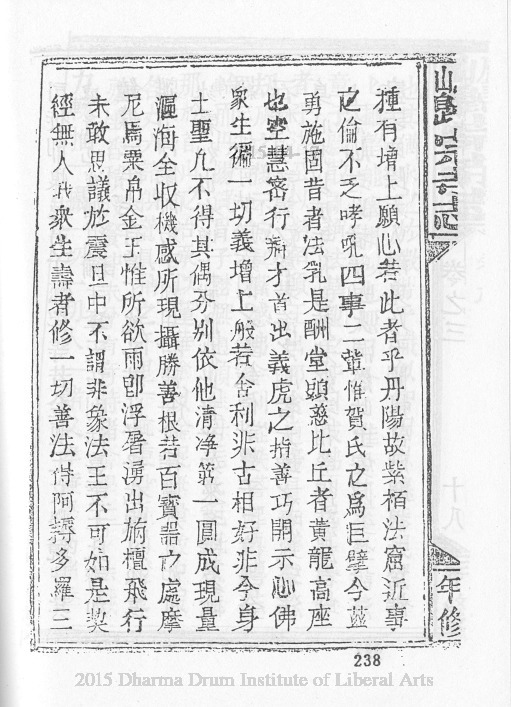 種有增上願心若此者乎丹陽故紫栢法窟近事
之倫不乏哮吼四事二輩惟賀氏之為巨擘今茲
勇施固昔者法乳是酬堂頭慈比丘者黃龍高座
也空慧密行辯才首出義虎之指善巧開示心佛
眾生徧一切義增上般若舍利非古相好非今身
土聖凡不得其偶分別依他清淨第一圓成現量
漚海全收機感所現攝勝善根若百寶器之處摩
尼焉粟帛金玉惟所欲雨即浮屠湧出旃檀飛行
未敢思議於震旦中不謂非象法王不可如是契
經無人我眾生壽者修一切善法得阿耨多羅三
卷之三
十八
年修
238
2015 Dharma Drum Institute of Liberal Arts